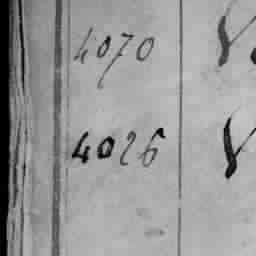 4070
4026